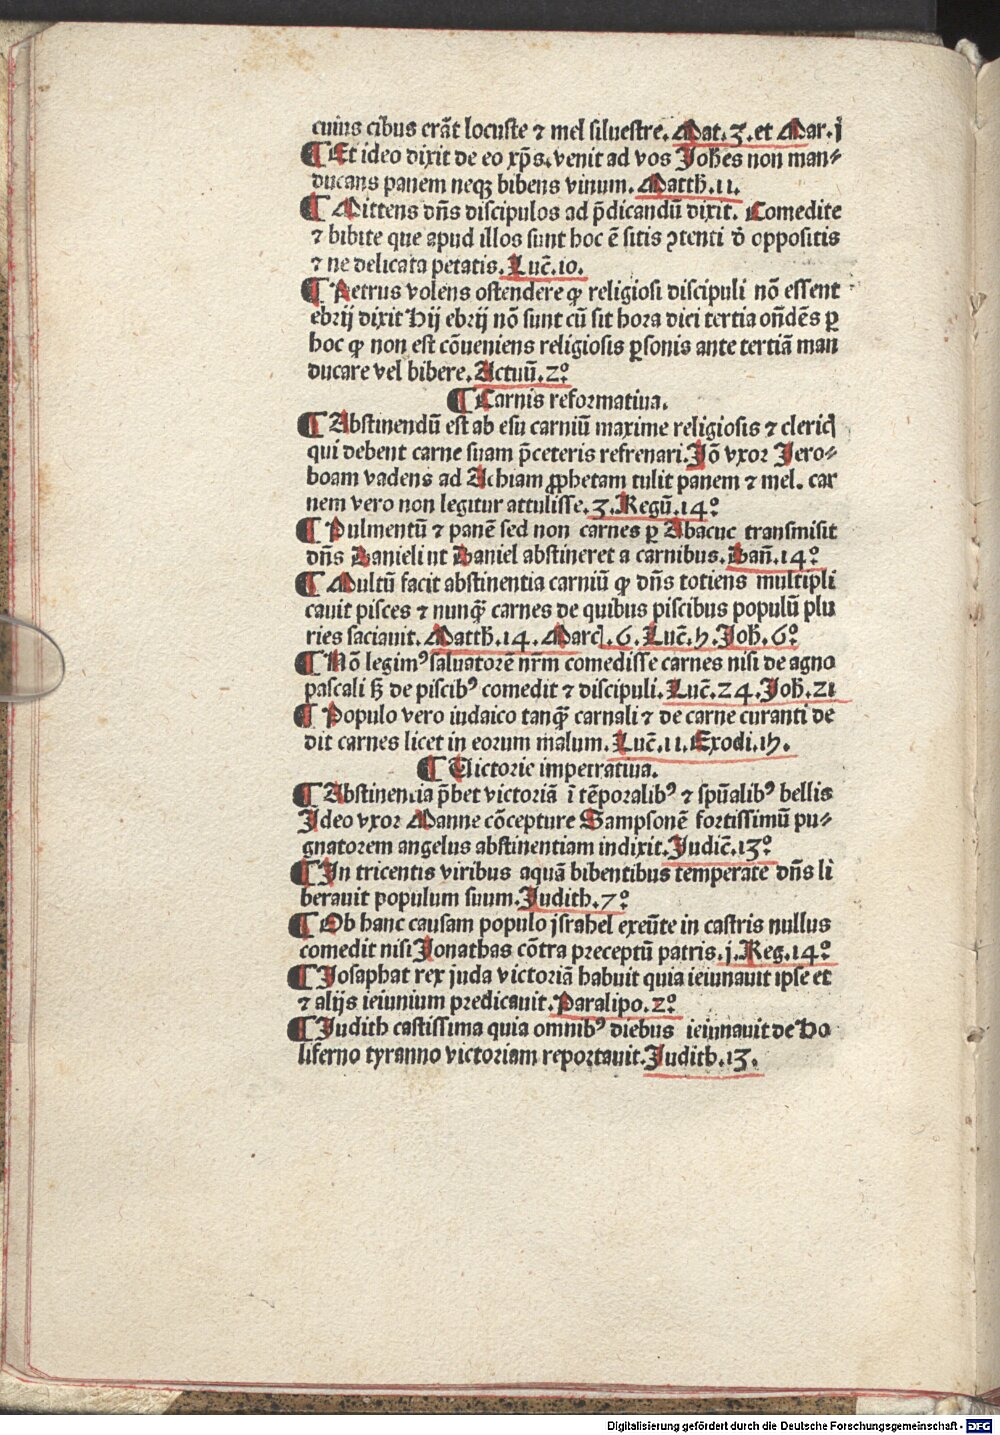 cuius cibus erāt locuste ⁊ mel siluestre. Mat.3.et Mar.j
¶ Et ideo dixit de eo xp̄s. venit ad vos Joh̄es non man⸗
ducans panem neqꝫ bibens vinum. Matth̄.11.
¶ Mittens dn̄s discipulos ad p̄dicandū dixit. Comedite
⁊ bibite que apud illos sunt hoc ē sitis ꝯtenti d̄ oppositis
⁊ ne delicata petatis. Luc̄.10.
¶ Petrus volens ostendere ꝙ religiosi discipuli nō essent
ebrij dixit Hij ebrij nō sunt cū sit hora diei tertia on̄dēs ꝑ
hoc ꝙ non est cōueniens religiosis ꝑsonis ante tertiā man
ducare vel bibere. Actuū.2°
¶ Carnis reformatiua.
¶ Abstinendū est ab esu carniū maxime religiosis ⁊ cleric̄
qui debent carne suam p̄ceteris refrenari. Jō vxor Jero⸗
boam vadens ad Achiam ꝓphetam tulit panem ⁊ mel. car
nem vero non legitur attulisse. 3. Regū.14°
¶ Pulmentū ⁊ panē sed non carnes ꝑ Abacuc transmisit
dn̄s Danieli ut Daniel abstineret a carnibus. Dan̄.14°
¶ Multū facit abstinentia carniū ꝙ dn̄s totiens multipli
cauit pisces ⁊ nunq̄ȝ carnes de quibus piscibus populū plu
ries saciauit. Matth̄.14. Marc̄.6. Luc̄.9. Joh̄.6°
¶ Nō legimꝰ saluatorē nr̄m comedisse carnes nisi de agno
pascali sȝ de piscibꝰ comedit ⁊ discipuli. Luc̄.24. Joh̄.21
¶ Populo vero iudaico tanq̄ȝ carnali ⁊ de carne curanti de
dit carnes licet in eorum malum. Luc̄.11. Exodi.19.
¶ Uictorie impetratiua.
¶ Abstinentia p̄bet victoriā ī tēporalibꝰ ⁊ spūalibꝰ bellis
Ideo vxor Manne cōcepture Sampsonē fortissimū pu⸗
gnatorem angelus abstinentiam indixit. Judic̄.13°
¶ In tricentis viribus aquā bibentibus temperate dn̄s li
berauit populum suum. Judith.7°
¶ Ob hanc causam populo jsrahel exeūte in castris nullus
comedit nisi Jonathas cōtra preceptū patris. j. Reg.14°
¶ Josaphat rex juda victoriā habuit quia ieiunauit ipse et
⁊ alijs ieiunium predicauit. Paralipo.2°
¶ Judith castissima quia omnibꝰ diebus ieiunauit de Ho
liferno tyranno victoriam reportauit. Judith.13.
Digitalisierung gefördert durch die Deutsche Forschungsgemeinschaft - DFG